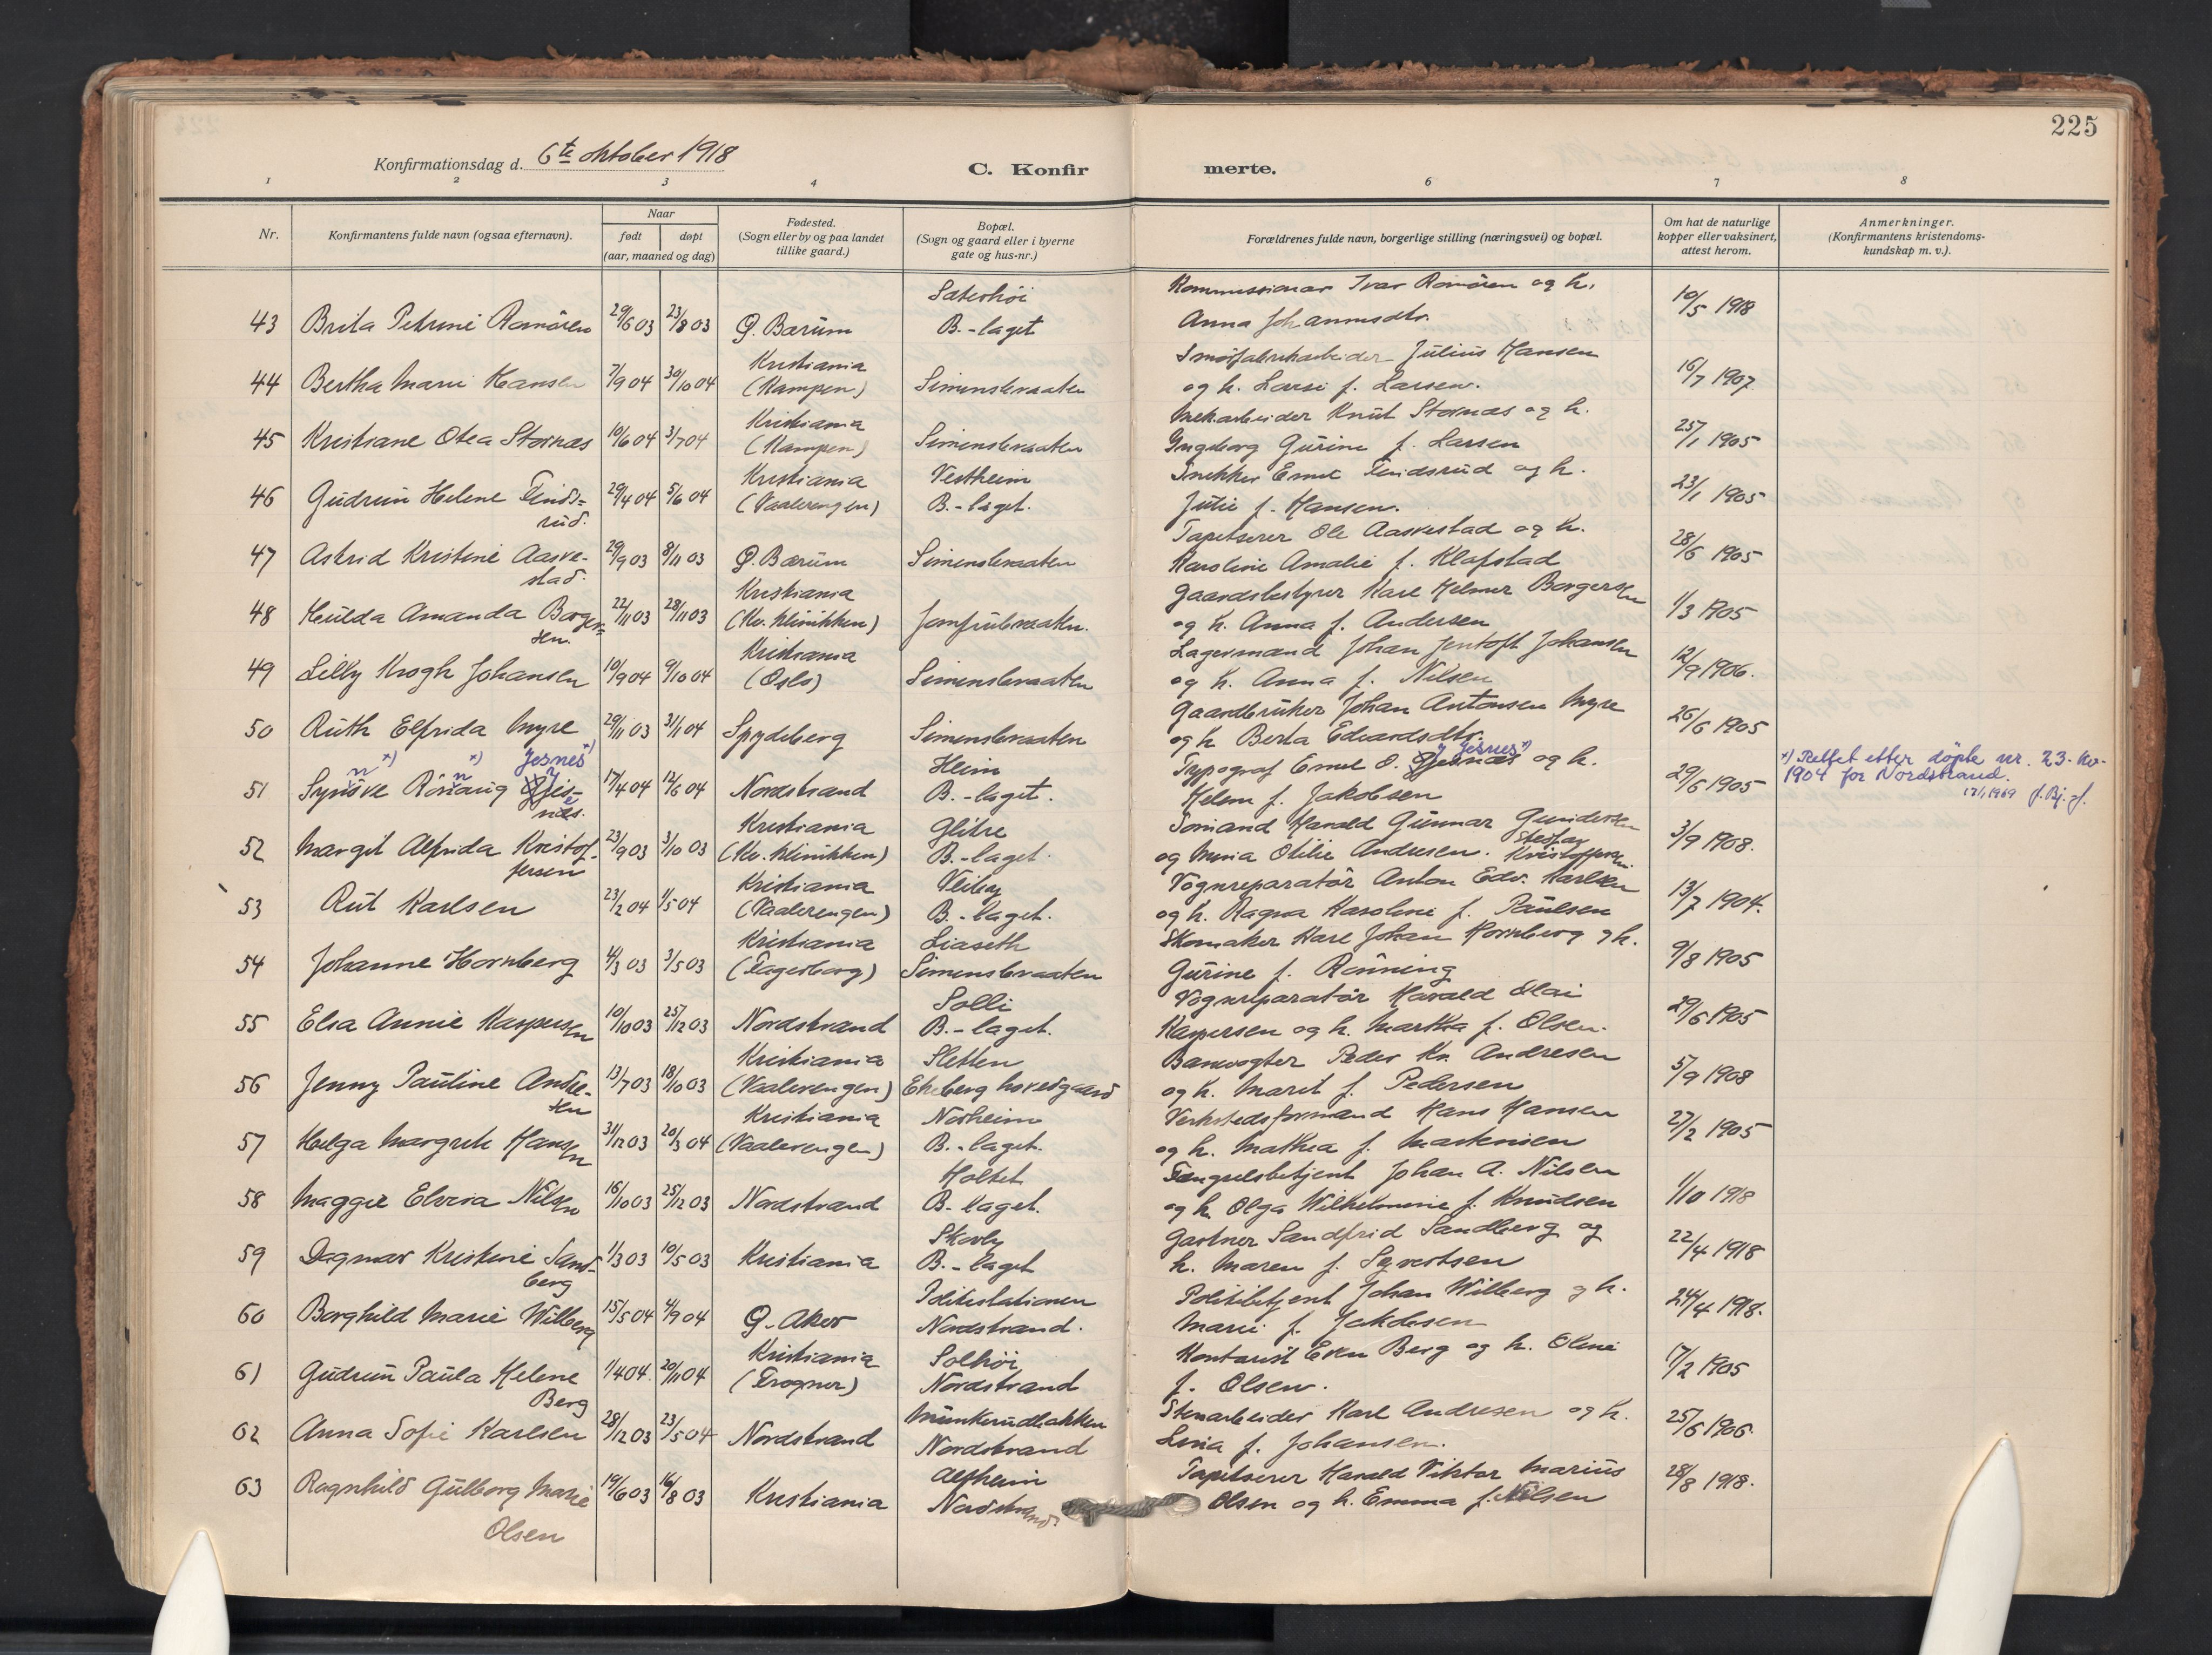 225
Konfirmationsdag d. 6te oktober 1918
C. Konfir merte.
1 2 3 4 6 7 8
Nr.
Konfirmantens fulde navn (ogsaa efternavn).
Naar
født døpt
(aar, maaned og dag)
Fødested.
(Sogn eller by og paa landet
tillike gaard.)
Bopæl.
(Sogn og gaard eller i byerne
gate og hus-nr.)
Forældrenes fulde navn, borgerlige stilling (næringsvei) og bopæl.
Om hat de naturlige
kopper eller vaksinert,
attest herom.
Anmerkninger.
(Konfirmantens kristendoms-
kundskap m. v.).
Sæterhöi Ivar Ramören og h.
43 Brita Petrine Ramören 29/6 03 23/8 03 Ø. Bærum B.-laget Anna Johannesdtr. 10/5 1918
Kristiania Julius Hansen
44 Bertha Marie Hansen 7/9 04 30/10 04 (Kampen) Simensbraaten og h. Lovise f. Larsen. 16/7 1907
Kristiania Knut Stornæs og h.
45 Kristiane Otea Stornæs 10/6 04 3/7 04 (Kampen) Simensbraaten Ingeborg Gurine f. Larsen 25/1 1905
Kristiania Vestheim Snekker Emil Findsrud og h.
46 Gudrun Helene Finds- 29/4 04 5/6 04 (Vaalerengen) B.-laget. Julie f. Hansen. 23/1 1905
rud. Tapetserer Ole Aasvestad og h.
47 Astrid Kristine Aasve- 29/9 03 8/11 03 Ø. Bærum Simensbraaten Karoline Amalie f. Klafstad 28/6 1905
stad. Kristiania Gaardsbestyrer Karl Helmer Borgersen
48 Hulda Amanda Borger- 22/11 03 28/11 03 (Kv. klinikken) Jomfrubraaten. og h. Anna f. Andersen 1/3 1905
sen. Kristiania Lagermand Johan Jentoft Johansen
49 Lilly Krogh Johansen 10/9 04 9/10 04 (Oslo) Simensbraaten og h. Anna f. Nilsen 12/9 1906.
Gaardbruker Johan Antonsen Myre
50 Ruth Elfrida Myre 29/11 03 31/1 04 Spydeberg Simensbraaten og h. Berta Edvardsdtr. 26/6 1905
n x) n x) Jesnes x) Heim Typograf Emil O. Gjesnæs J Jesnes x) og h. x) Rettet etter døpte nr. 23. kv-
51 Synsve Rönnaug Gjes- 17/4 04 12/6 04 Nordstrand B.-laget. Helene f. Jakobsen 29/6 1905 1904 for Nordstrand.
næs. 17/1 1969
Kristiania Glitre Formand Harald Gunnar Gundersen
52 Margit Alfrida Kristof- 23/9 03 3/10 03 (Kv. klinikken) B.-laget. og Minia Otilie Andresen. Stedfar Kristoffersen. 3/9 1908.
fersen Kristiania Veiby Vognreparatör Anton Edv. Karlsen
53 Rut Karlsen 23/2 04 1/5 04 (Vaalerengen) B.-laget. og h. Ragna Karoline f. Paulsen 13/7 1904.
Kristiania Liaseth Skomaker Karl Johan Hornberg og h.
54 Johanne Hornberg 4/3 03 3/5 03 (Fagerborg) Simensbraaten Gurine f. Rönning 9/8 1905
Solli Vognreparatör Harald Olai
55 Elsa Annie Kaspersen 10/10 03 25/12 03 Nordstrand B.-laget. Kaspersen og h. Martha f. Olsen. 29/6 1905
Kristiania Sletten Banevogter Peder Kr. Andresen
56 Jenny Pauline Andre- 13/7 03 18/10 03 (Vaalerengen) Ekeberg hovedgaard og h. Marit f. Pedersen 5/9 1908
sen Kristiania Norheim Verkstedsformand Hans Hansen
57 Helga Margrete Hansen 31/12 03 20/3 04 (Vaalerengen) B.-laget. og h. Mathea f. Martensen 27/2 1905
Holtet Fængselsbetjent Johan A. Nilsen
58 Maggie Elvira Nilsen 16/10 03 25/12 03 Nordstrand B.-laget. og h. Olga Wilhelmine f. Knudsen 1/10 1918
Skovly Gartner Sandfrid Sandberg og
59 Dagmar Kristine Sand- 1/3 03 10/5 03 Kristiania B.-laget h. Maren f. Syvertsen 22/4 1918
berg Politistationen Politibetjent Johan Wilberg og h.
60 Borghild Marie Wilberg 15/5 04 4/9 04 Ø. Aker Nordstrand. Marie f. Jakobsen 24/4 1918.
Kristiania Solhöi Kontorist Even Berg og h. Oline
61 Gudrun Paula Helene 1/4 04. 20/11 04 (Frogner) Nordstrand f. Olsen. 17/2 1905
Berg Munkerudbakken Stenarbeider Karl Andresen og h.
62 Anna Sofie Karlsen 28/12 03 23/5 04 Nordstrand Nordstrand Lina f. Johansen. 25/6 1906.
Alfheim Tapetserer Harald Viktor Marius
63 Ragnhild Gulborg Marie 19/6 03 16/8 03 Kristiania Nordstrand. Olsen og h. Emma f. Nilsen 28/8 1918.
Olsen